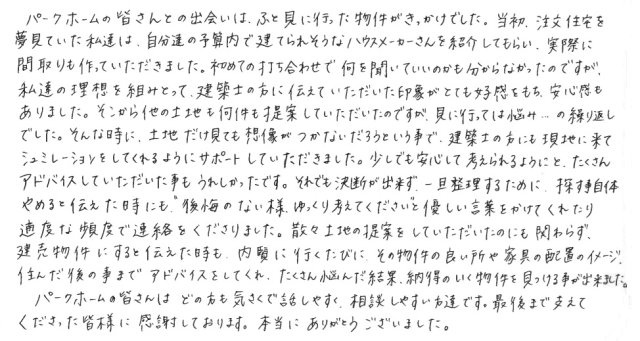 パークホームの皆さんとの出会いは、ふと見に行った物件がきっかけでした。当初、注文住宅を
夢見ていた私達は、自分達の予算内で建てられそうなハウスメーカーさんを紹介してもらい、実際に
間取りも作っていただきました。初めての打ち合わせで何を聞いていいのかも分からなかったのですが、
私達の理想を組みとって、建築士の方に伝えていただいた印象がとても好感をもち、安心感も
ありました。そこから他の土地も何件も提案していただいたのですが、見に行っては悩み…の繰り返し
でした。そんな時に、土地だけ見ても想像がつかないだろうという事で、建築士の方にも現地に来て
シュミレーションをしてくれるようにサポートしていただきました。少しでも安心して考えられるようにと、たくさん
アドバイスしていただいた事もうれしかったです。それでも決断が出来ず、一旦整理するために、探す事自体
やめると伝えた時にも、"後悔のない様、ゆっくり考えてください"と優しい言葉をかけてくれたり
適度な頻度で連絡をくださりました。散々土地の提案をしていただいたのにも関わらず、
建売物件にすると伝えた時も、内覧に行くたびに、その物件の良い所や家具の配置のイメージ、
住んだ後の事までアドバイスをしてくれ、たくさん悩んだ結果、納得のいく物件を見つける事が出来ました。
パークホームの皆さんは どの方も気さくで話しやすく、相談しやすい方達です。最後まで支えて
くださった皆様に感謝しております。本当にありがとうございました。